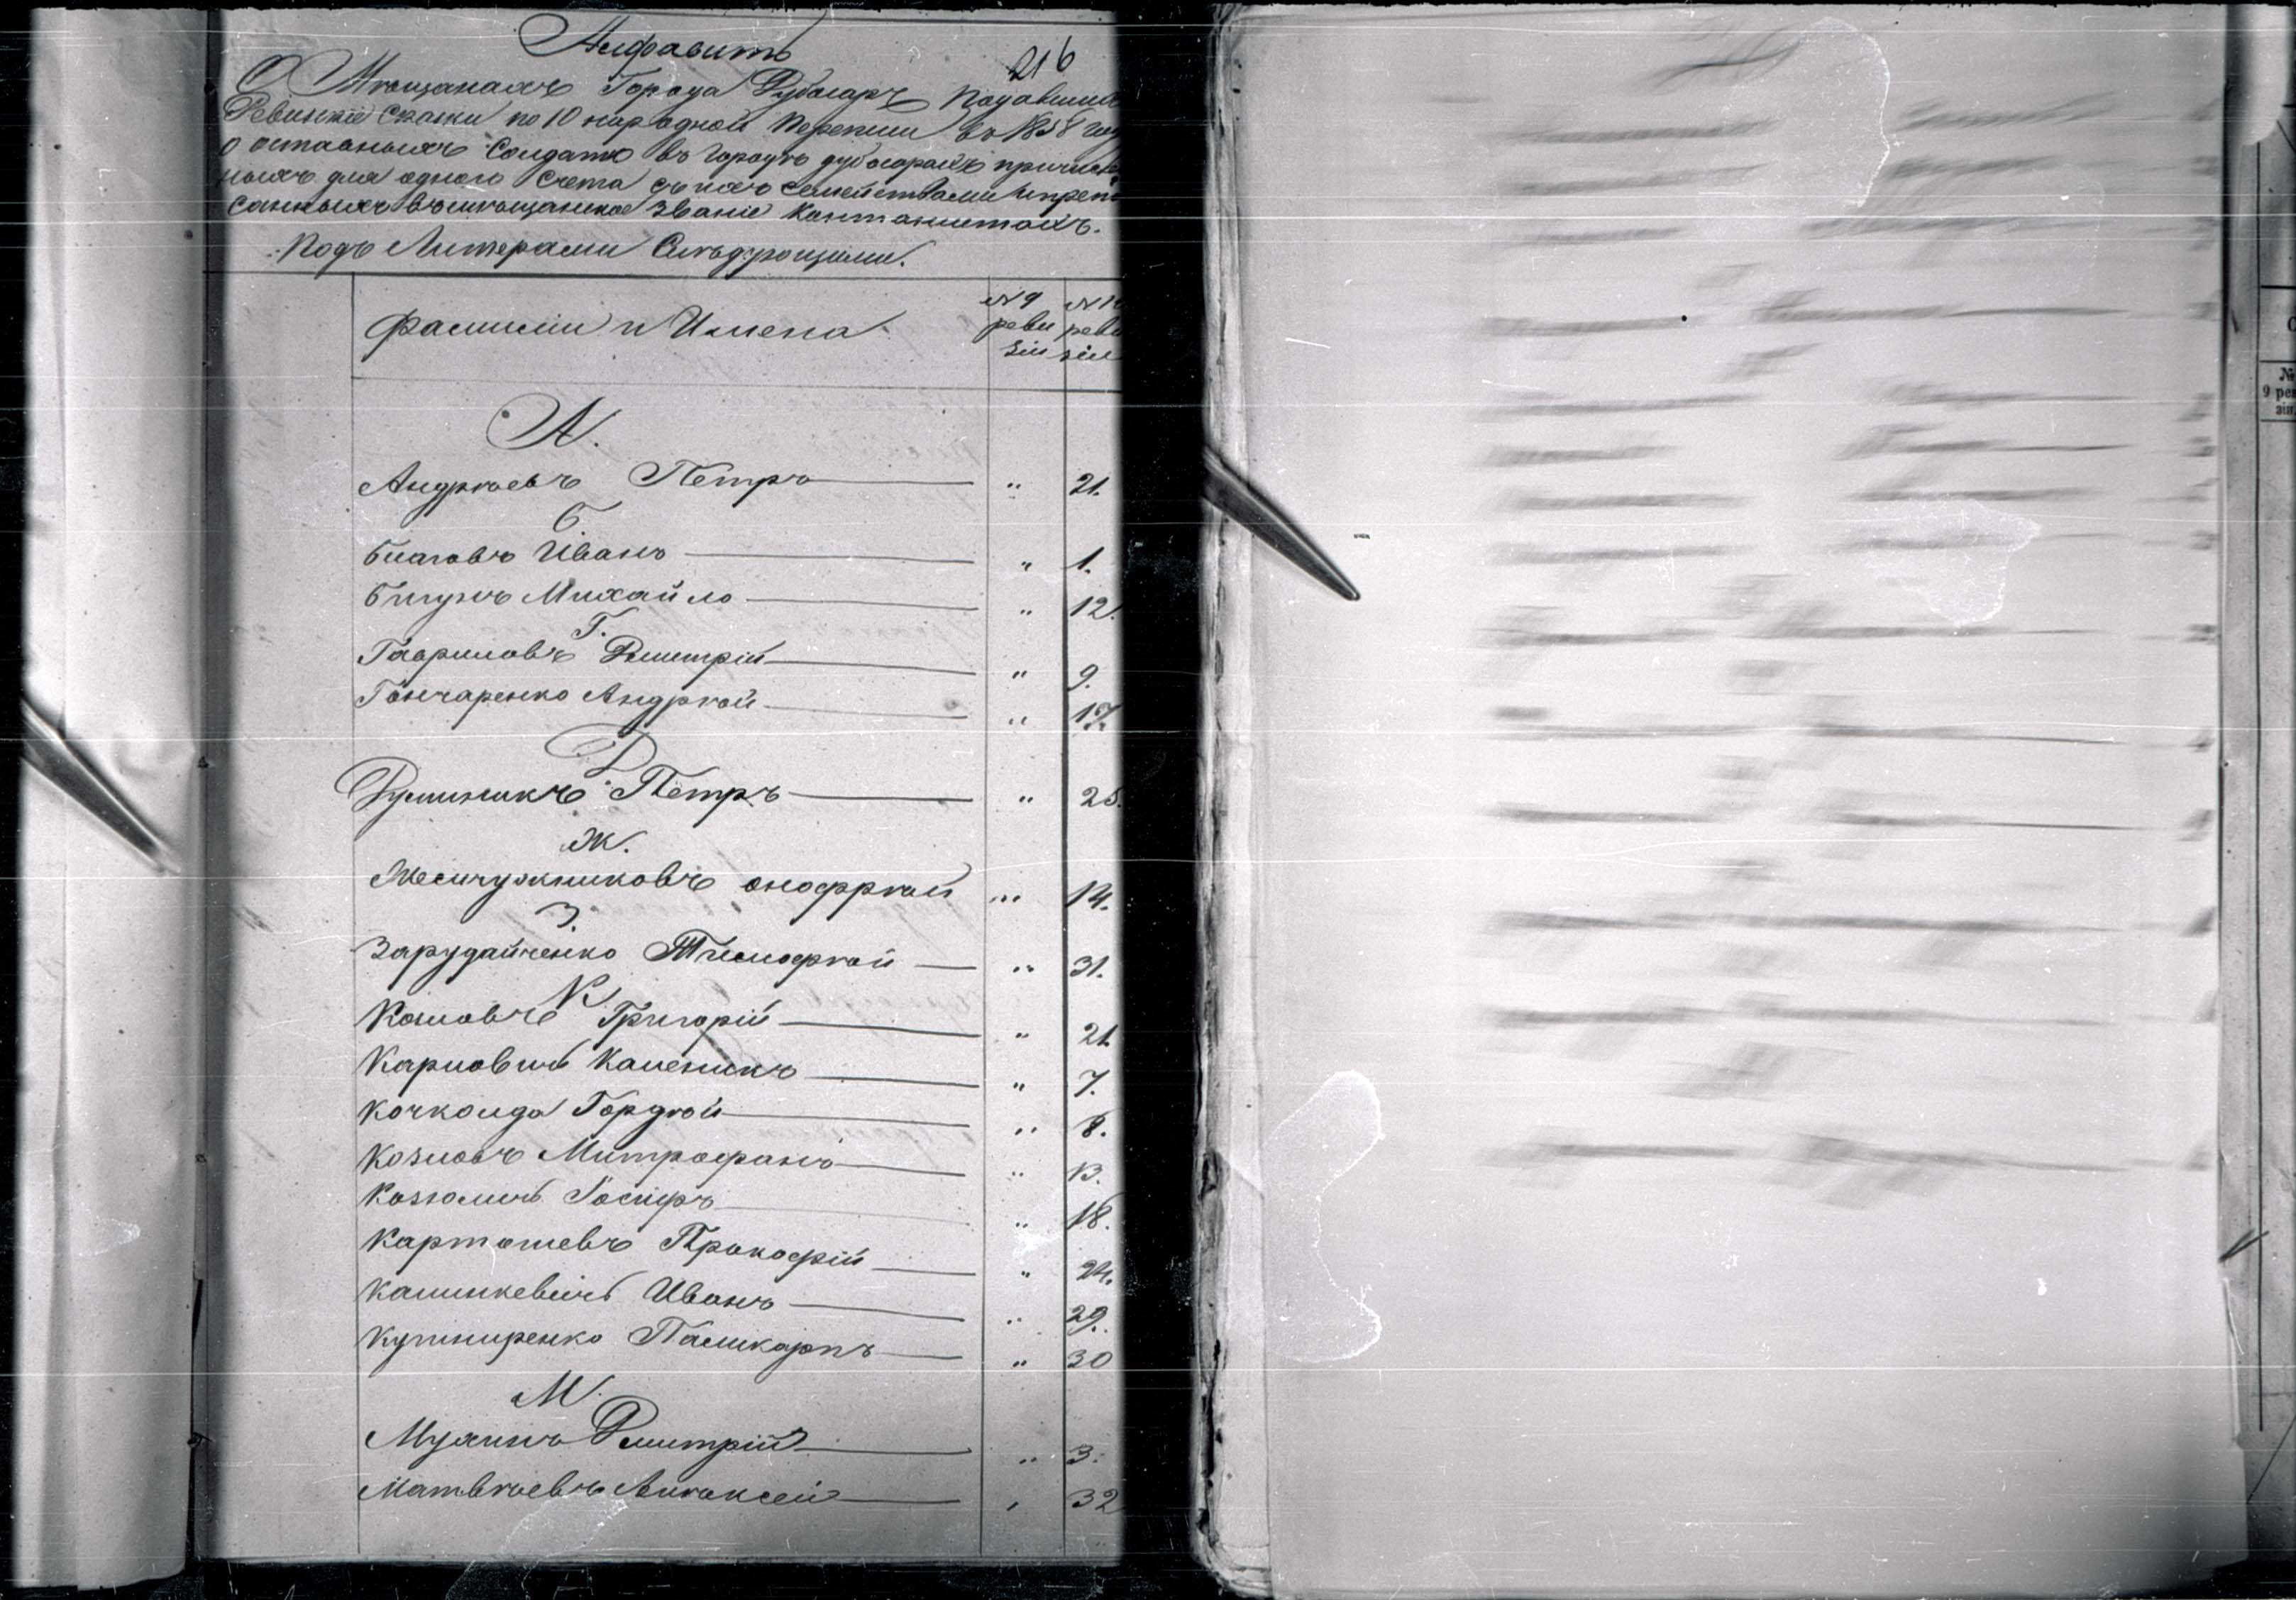 Алфавитъ
216
О Мѣщанахъ Города Дубосаръ Подавшихъ
Ревизкіе Сказки по 10 народной Переписи въ 1858 году
о отставныхъ Солдатъ въ городѣ дубосарахъ причислен
ныхъ для одного счета съ ихъ семействами и
санныхъ въ мѣщанское Званіе Кантонистахъ.
Подъ Литерами Слѣдующими.
Фамиліи и Имена
№ 9 ревизіи
№ 10 ревизіи
А.
Андрѣевъ Петръ " 21.
Б.
Иванъ " 1.
Бигунъ Михайло " 12.
Г.
Гавриловъ Дмитрій " 9.
Гончаренко Андрѣй " 17.
Д
Петръ " 25.
Ж.
Жемчужниковъ Онофрѣй " 14.
З.
Зарудайченко Тимофѣй " 31.
К
Григорій " 21
Карповичъ Каленикъ " 7.
Гордѣй " 8.
Козловъ Митрофанъ " 13.
" 18.
Картошевъ Прокофій " 24.
Калинкевичъ Иванъ " 29.
Кушниренко Паликарпъ " 30
М.
Мухинъ Дмитрій " 3.
Матвѣевъ Алѣксей " 32
№
9 рев
зіи